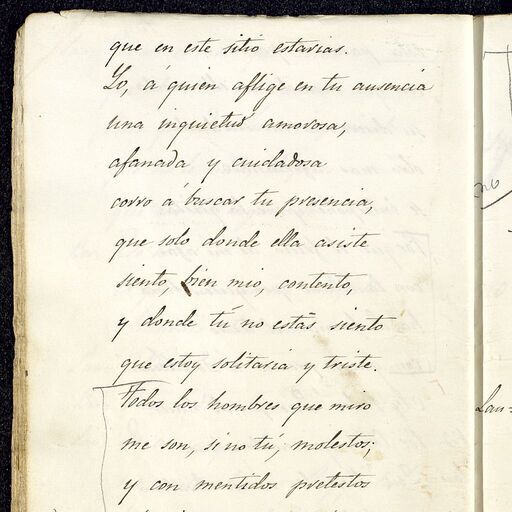 que en este sitio estarias.
Yo, á quien aflige en tu ausencia
una inquietud amorosa,
afanada y cuidadosa
corro á buscar tu presencia,
que solo donde ella asiste
siento, bien mio, contento,
y donde tú no estás siento
que estoy solitaria y triste.
Todos los hombres que miro
me son, si no tú, molestos;
y con mentidos pretestos
Lau=